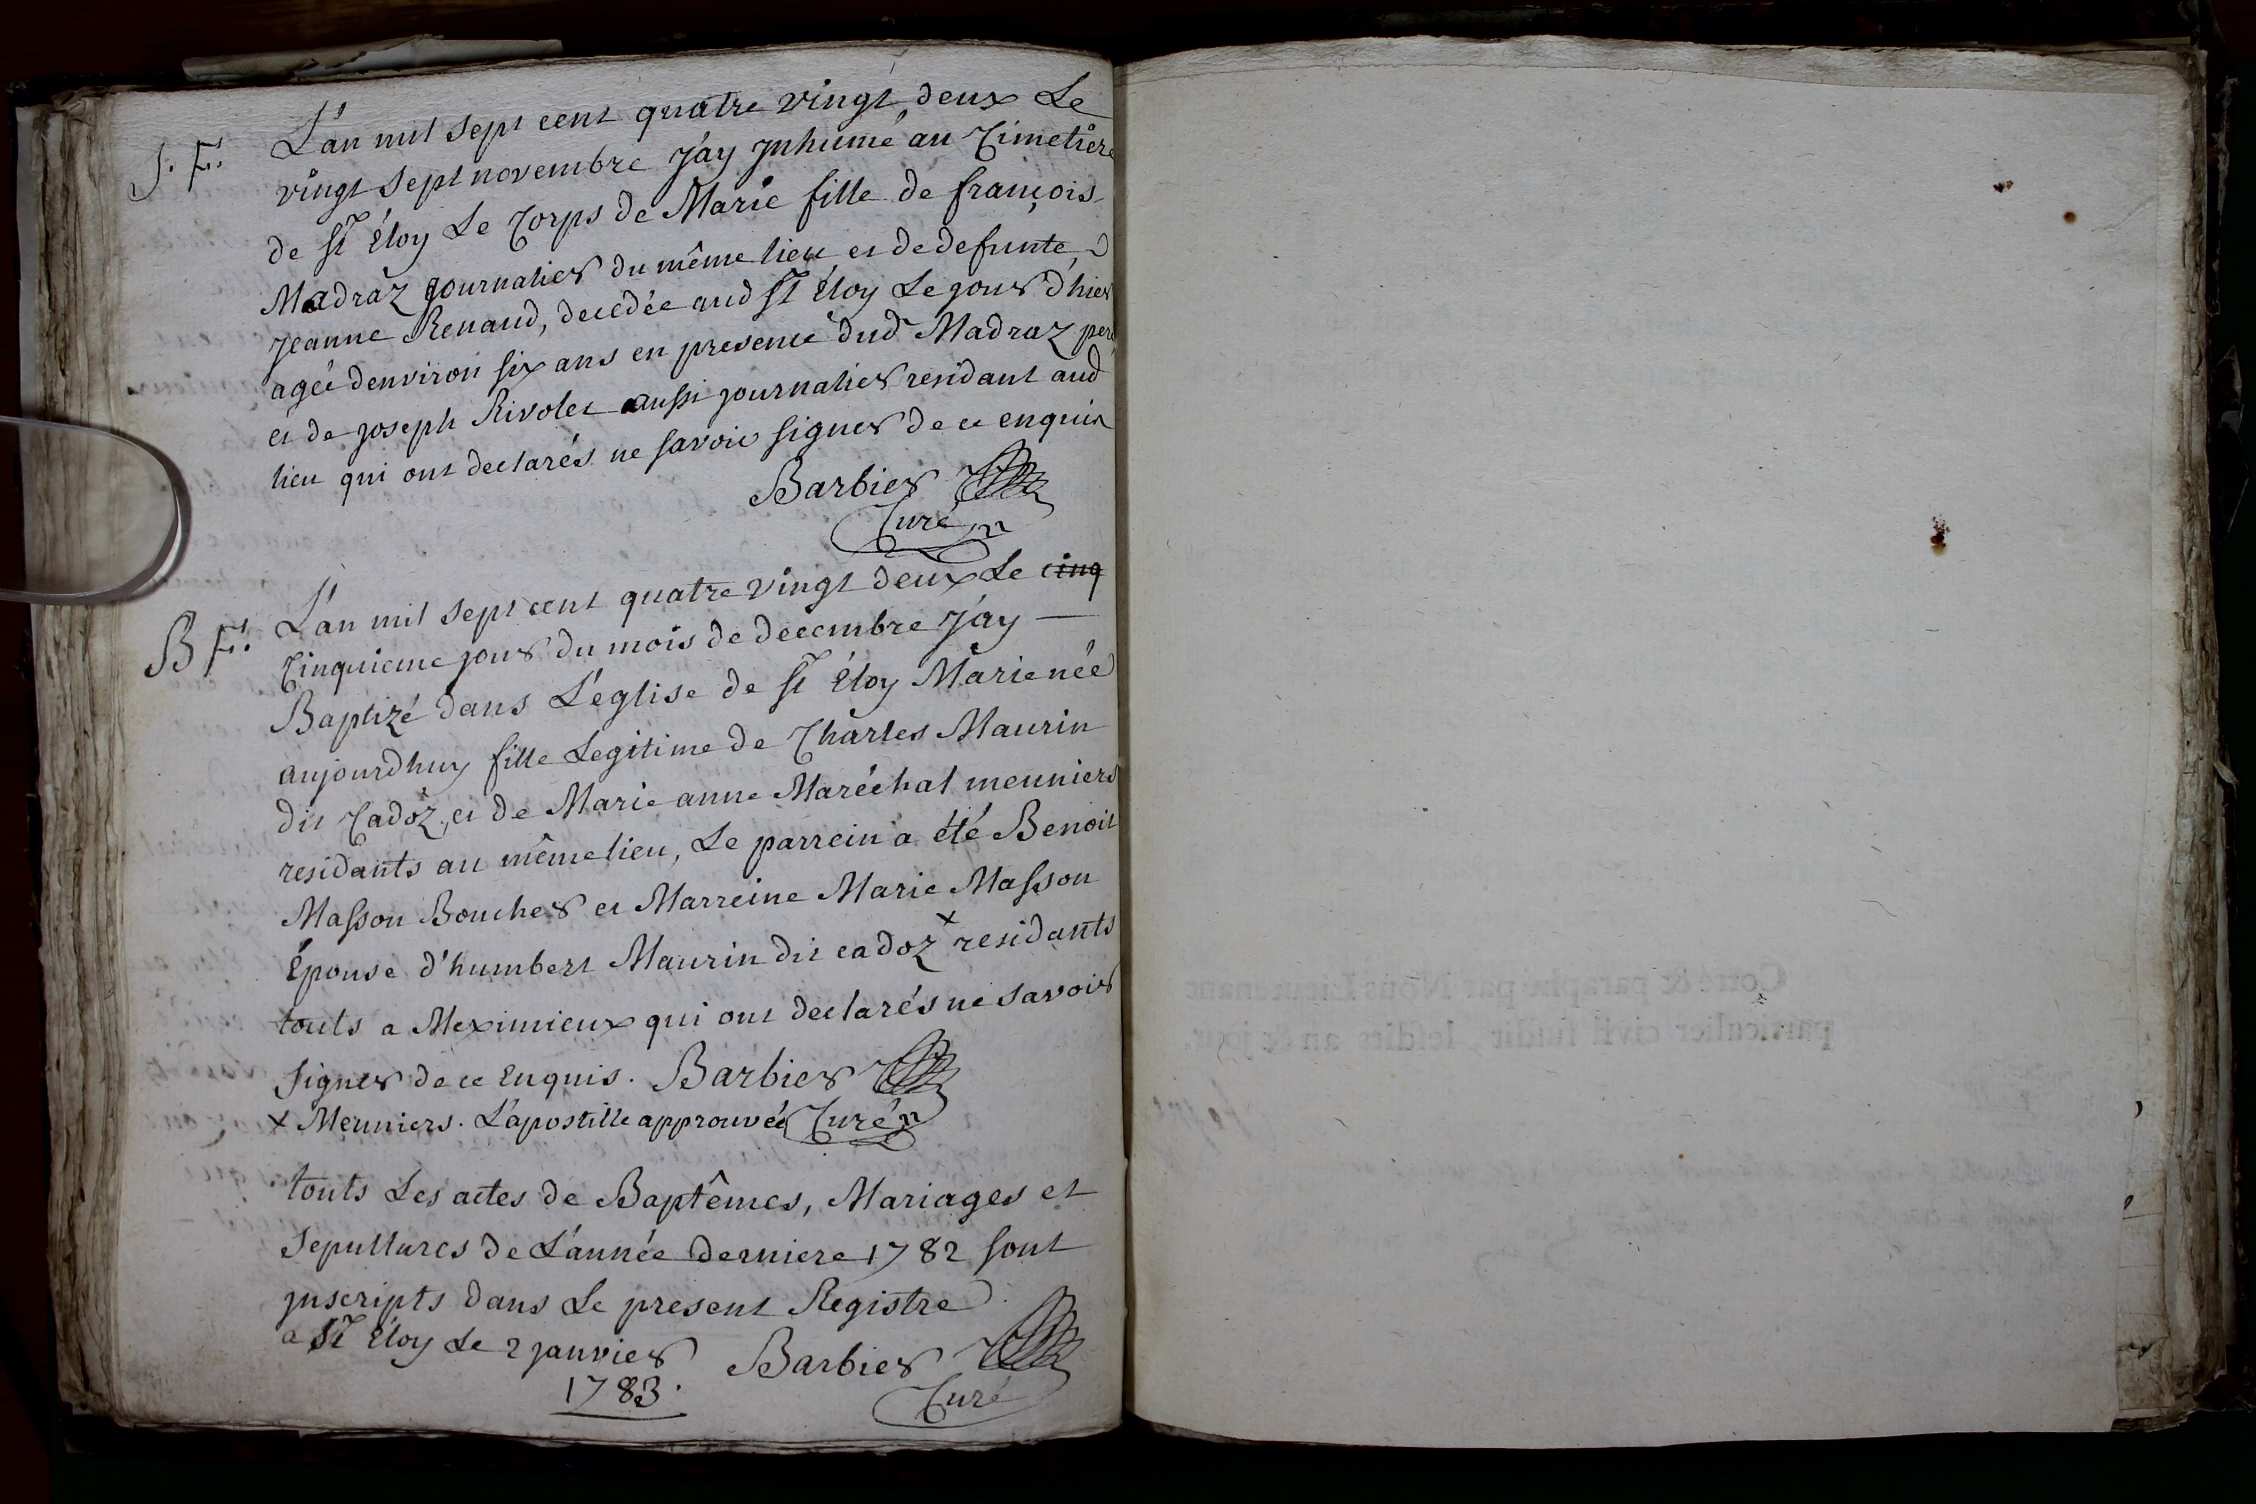 S. F.
L'an mil sept cent quatre vingt deux Le
vingt sept novembre j'ay jnhumé au Cimetiere
de St Éloy Le Corps de Marie fille de françois
Madraz journalier du même lieu et de defunte
jeanne Renaud, decedée aud St Éloy Le jour d'hier
agée d'environ six ans en presence dud Madraz pere
et de joseph Rivolet aussi journalier residant aud
lieu qui ont declarés ne savoir signer de ce enquis
Barbier
Curé
B F.
L'an mil sept cent quatre vingt deux Le cinq
Cinquieme jour du mois de decembre j'ay
Baptizé dans L'église de St Éloy Marie née
aujourdhuy fille Legitime de Charles Maurin
dit Cadoz, et de Marie anne Maréchal meuniers
residants au même lieu, Le parrein a été Benoit
Masson Boucher et Marreine Marie Masson
Épouse d'humbert Maurin dit cadoz x residants
touts a Meximieux qui ont declarés ne savoir
signer de ce Enquis. Barbier
x Meuniers. L'apostille approuvée Curé
touts Les actes de Baptêmes, Mariages et
Sepultures de L'année derniere 1782 sont
jnscripts dans Le present Registre
a St Éloy Le 2 janvier Barbier
1783. Curé
Cotté & paraphé par Nous Lieutenant
particulier civil susdit, lesdits an & jour.